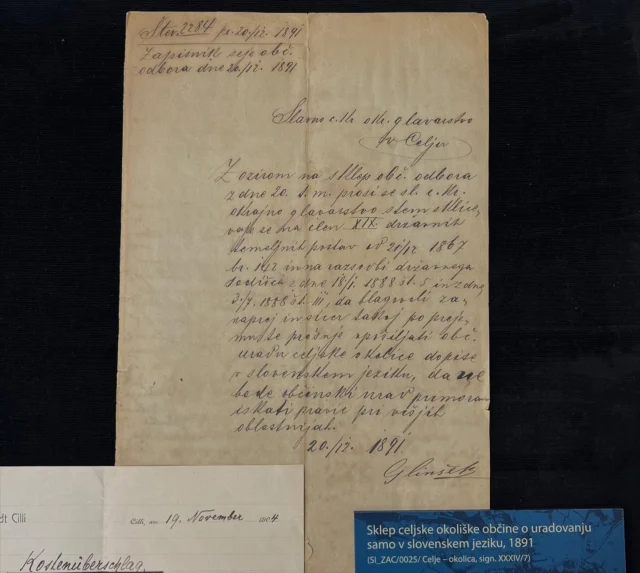 Štev. 2284 pr. 20./12. 1891
Zapisnik seje obč.
odbora dne 20./12. 1891
Slavno c. kr. okr. glavarstvo
v Celju
Z ozirom na sklep obč. odbora
z dne 20. t. m. prosi se sl. c. kr.
okrajno glavarstvo s tem sklice-
vaje se na člen XIX. državnih
temeljnih postav od 21/12 1867
br. 142 in na razsodbi državnega
sodišča z dne 18/1. 1888 št. 5 in z dne
3./7. 1888 št. 111, da blagovoli za-
naprej in sicer takoj po preje-
mu te prošnje opošiljati obč.
uradu celjske okolice dopise
v slovenskem jeziku, da ne
bode občinski urad primoran
iskati pravic pri višjih
oblastnijah.
20./12. 1891
Glinšek
dt Cilli
Cilli, am 19. November 1904
Kostenüberschlag.
Sklep celjske okoliške občine o uradovanju
samo v slovenskem jeziku, 1891
(SI_ZAC/0025/ Celje – okolica, sign. XXXIV/7)